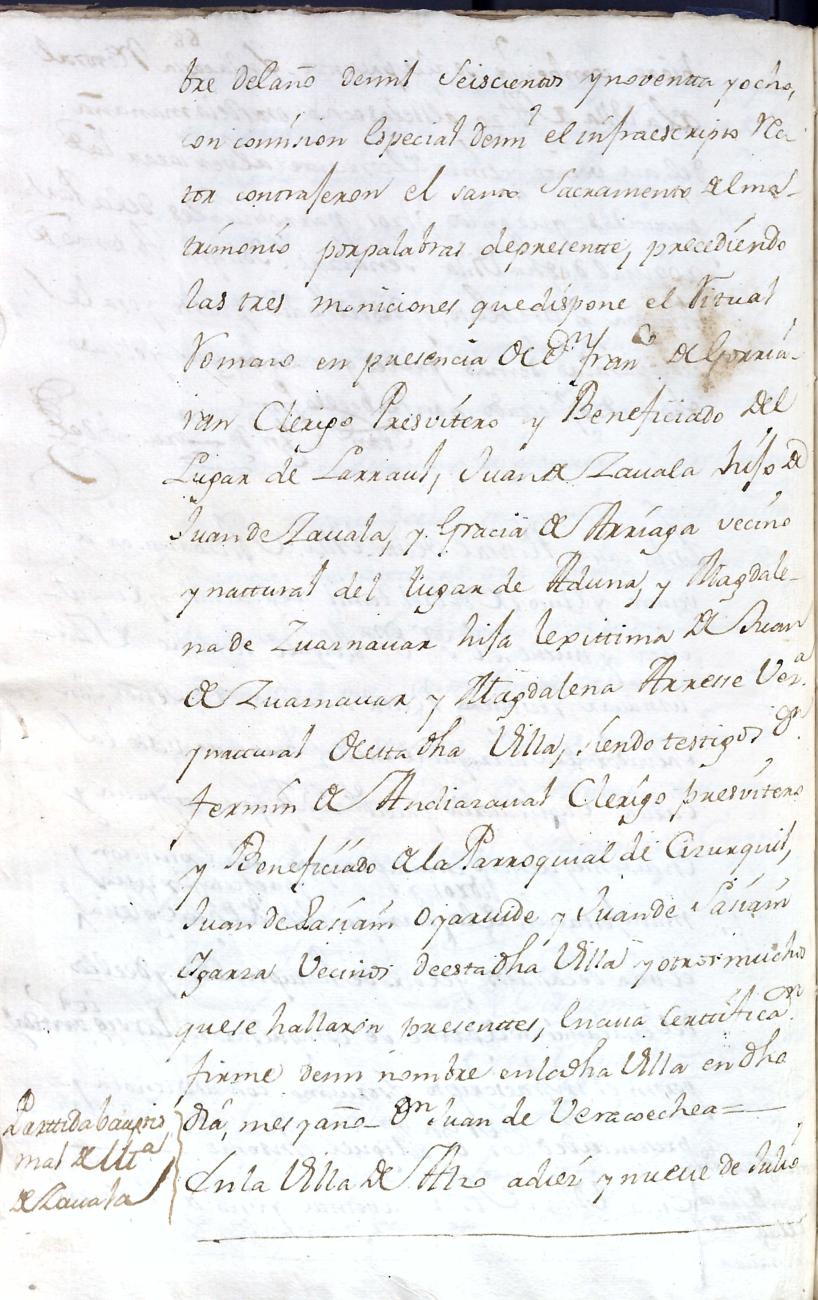 bre del año demil Seiscientos ynoventta yocho,
con comision Especial demi el infraescripto Rec-
tor contraieron el santo Sacramento delma-
trimonio porpalabras depresentte, precediendo
las tres moniciones quedispone el Ritual
Romano en presencia de Dn. franco. de Gorria-
ran Clerigo Presvitero y Beneficiado del
Lugar de Larraul, Juan de Zavala hijo de
Juan de Zavala, y Gracia de Arriaga vecino
ynattural del lugar de Aduna, y Magdale-
na de Zuarnavar hija lexittima de Juan
de Zuarnavar y Magdalena Arresse Vea.
ynattural deesta dha Villa, siendo testigos Dn.
fermin de Andiazaval Clerigo presvitero
y Beneficiado de la Parroquial de Cizurquil,
Juan de Sasiain Oyarvide y Juan de Sasiain
Ygarza Vecinos deesta dha Villa yotros muchos
quese hallaron presenttes, Encuia Certtificaon.
firme demi nombre enladha Villa en dho
dia, mes yaño Dn. Juan de Veracoechea=
Parttida bauptis
mal de Ma
de Zavala
En la Villa de Atzo adiez y nueve de Julio